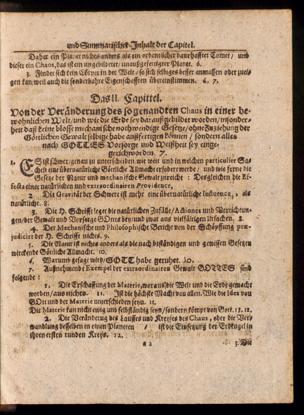 und Summarischer Inhalt der Capitel.
Daher ein Planet nichts anders als ein ordentlicher dauerhaffter Comet / und
dieser ein Chaos, das ist ein ungebildeter / unausgefertigter Planet. 6.
3. Findet sich kein Cörper in der Welt / so sich selbiges besser anmassen oder zueig-
nen kan / weil auch die sonderbahre Eigenschafften übereinstimmen. 6. 7.
Das II. Capittel.
Von der Veränderung des sogenandten Chaos in einer be-
wohnlichen Welt, und wie die Erde sey daraus gebildet worden / insonder-
heit daß keine blosse mechanische nothwendige Gesetze / ohne Zuziehung der
Göttlichen Gewalt selbige habe ausfertigen können / sondern alles
nach GOTTES Vorsorge und Weißheit sey einge-
gerichtet worden. 7.
1. ES ist schwer, genau zu unterscheiden wie weit und in welchen particulier Sa-
chen eine übernatürliche Göttliche Allmacht erfodert werde / und wie ferne sich
der Lauff der Natur und mechanische Gewalt erstrecke : Desgleichen die Ef-
fecta einer natürlichen und extraordinairen Providence,
2. Die Gravität der Schwere ist mehr eine übernatürliche Influence, als
natürlich. 8.
3. Die H. Schrifft leget die natürlichen Zufälle / Actiones und Verrichtun-
gen / der Gewalt und Vorsorge GOttes bey und zwar aus vielfältigen Ursachen. 8.
4. Der Mechanische und Philosophische Bericht von der Schöpffung præ-
judicirt der H. Schrifft nichts. 9.
5. Die Natur ist nichts anders als die nach beständigen und gewissen Gesetzen
wirckende Göttliche Allmacht. 10.
6. Warum gesagt wird / GOTT habe geruhet. 10.
7. Ausnehmende Exempel der extraordinairen Gewalt GOTTES sind
folgende :
1. Die Erschaffung der Materie, woraus die Welt und die Erde gemacht
worden / aus nichts. 11. Ist die höchste Macht von allen. Wie die Idea von
GOtt und der Materie unterschieden seyn. 11.
Die Materie kan nicht ewig und selbständig seyn / sondern kömpt von Gott. 11. 12.
2. Die Veränderung des Lauffes und Kreyses des Chaos, oder die Ver-
wandlung desselben in einen Planeten / ist die Einsetzung der Erdkugel in
ihren ersten runden Kreiß. 12.
a 2
3. Die